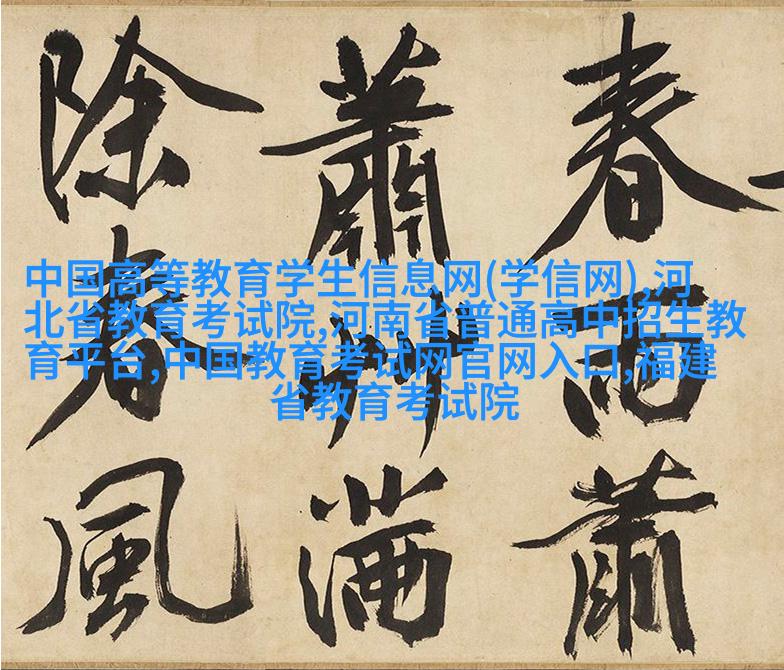 春雨蕭
蕭艸滿
除春風
中国高等教育学生信息网(学信网),河
北省教育考试院,河南省普通高中招生教
育平台,中国教育考试网官网入口,福建
省教育考试院